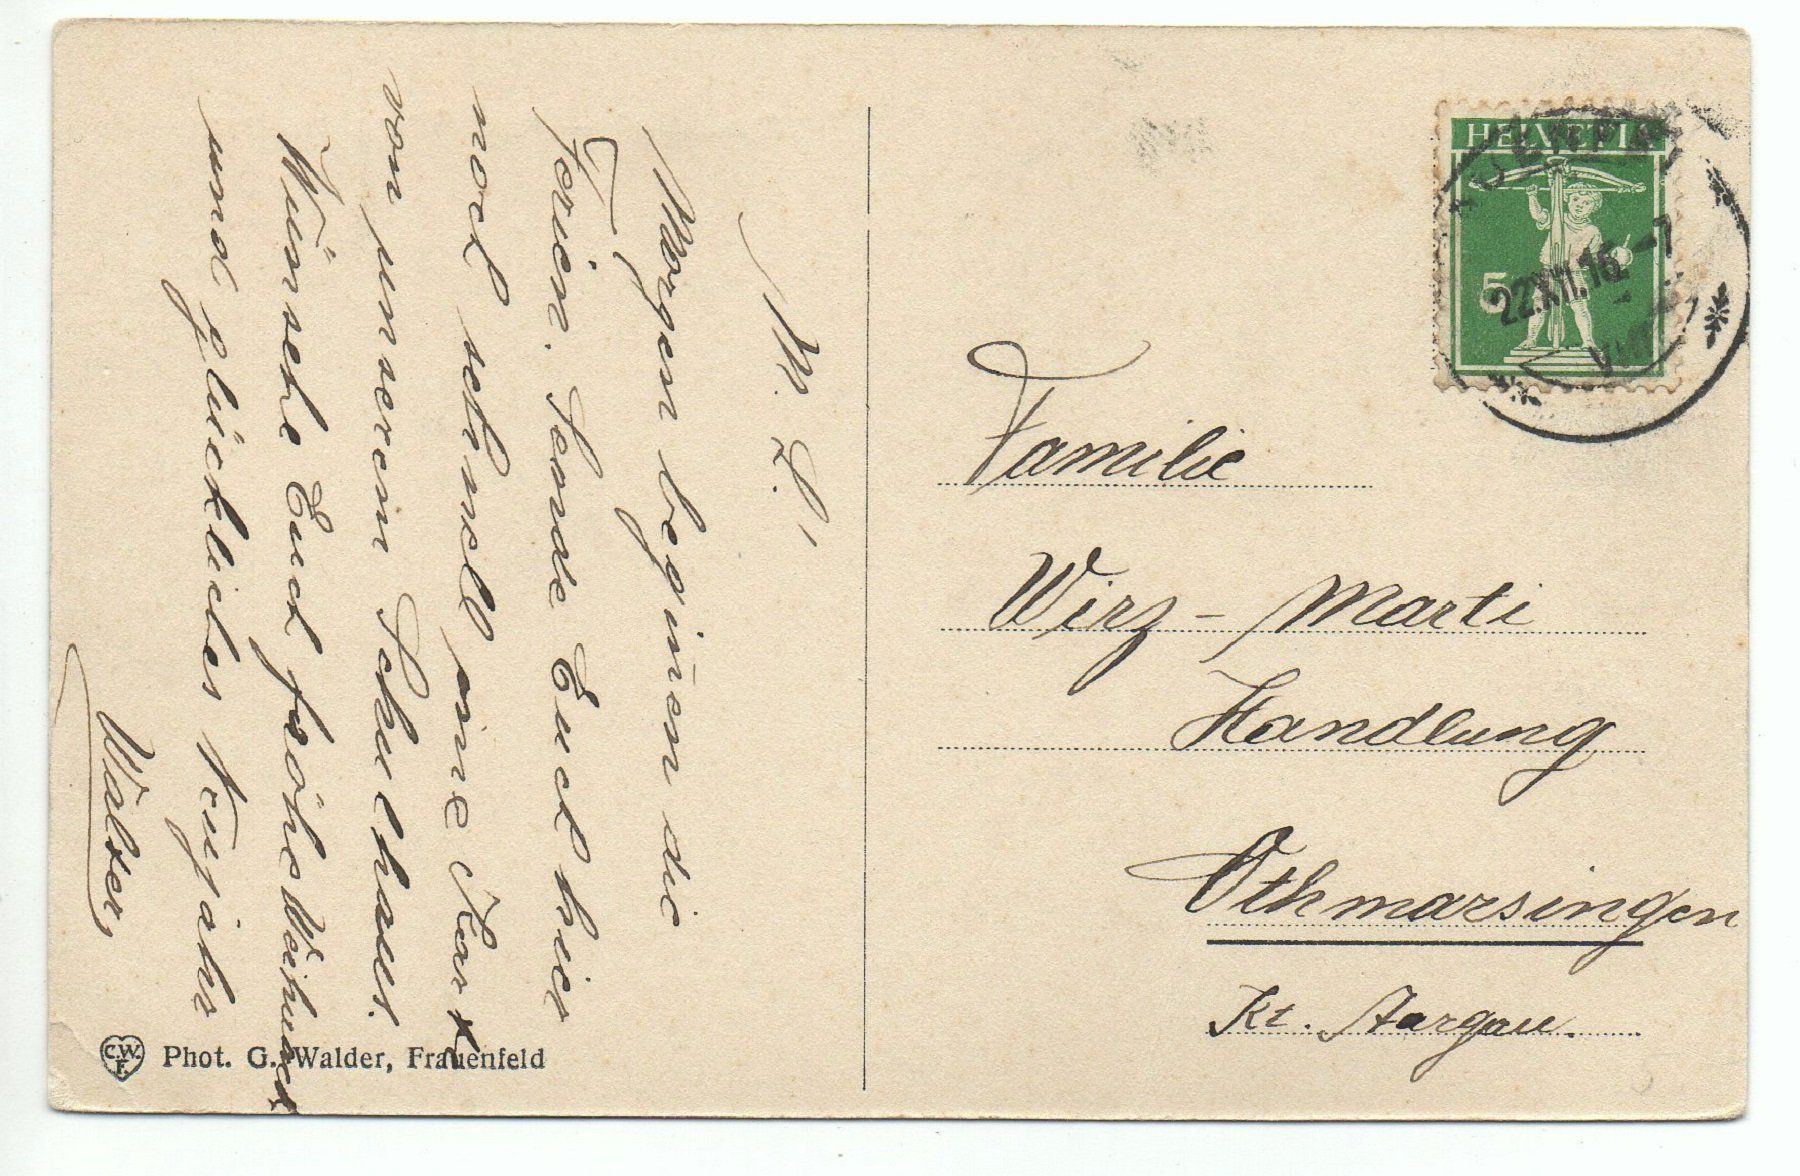 M. L!
Morgen begiñen die
Ferien. Sende Euch hier
noch schnell eine Kart
von unserem Schulhaus.
Wünsche Euch fröhe Weihnacht
und glückliches Neujahr
Walter
C.W.
F.
Phot. G. Walder, Frauenfeld
HELVETIA
5
22.XII.16.-7
Familie
Wirz-Marti
Handlung
Othmarsingen
Kt. Aargau.